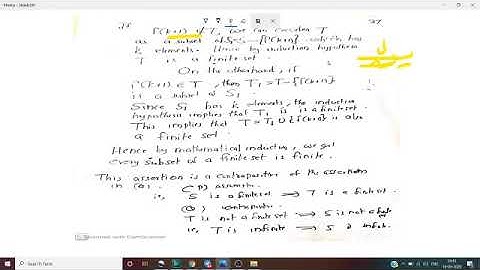 f(k+1) ∉ T, we can consider T
as a subset of S₁ = S - {f(k+1)} which has
k elements. Hence by induction hypothesis
T is a finite set.
On the otherhand, if
f(k+1) ∈ T, then T₁ = T - {f(k+1)}
is a subset of S₁.
Since S₁ has k elements, the induction
hypothesis implies that T₁ is a finite set.
This implies that T = T₁ ∪ {f(k+1)} is also
a finite set.
Hence by mathematical induction, we get
every subset of a finite set is finite.
This assertion is a contrapositive of the assertion
in (b).
S is a finite set ⟹ T is a finite set.
(b) contrapositive
T is not a finite set ⟹ S is not a finite
ie, T is infinite ⟹ S is infinite.
Scanned with CamScanner